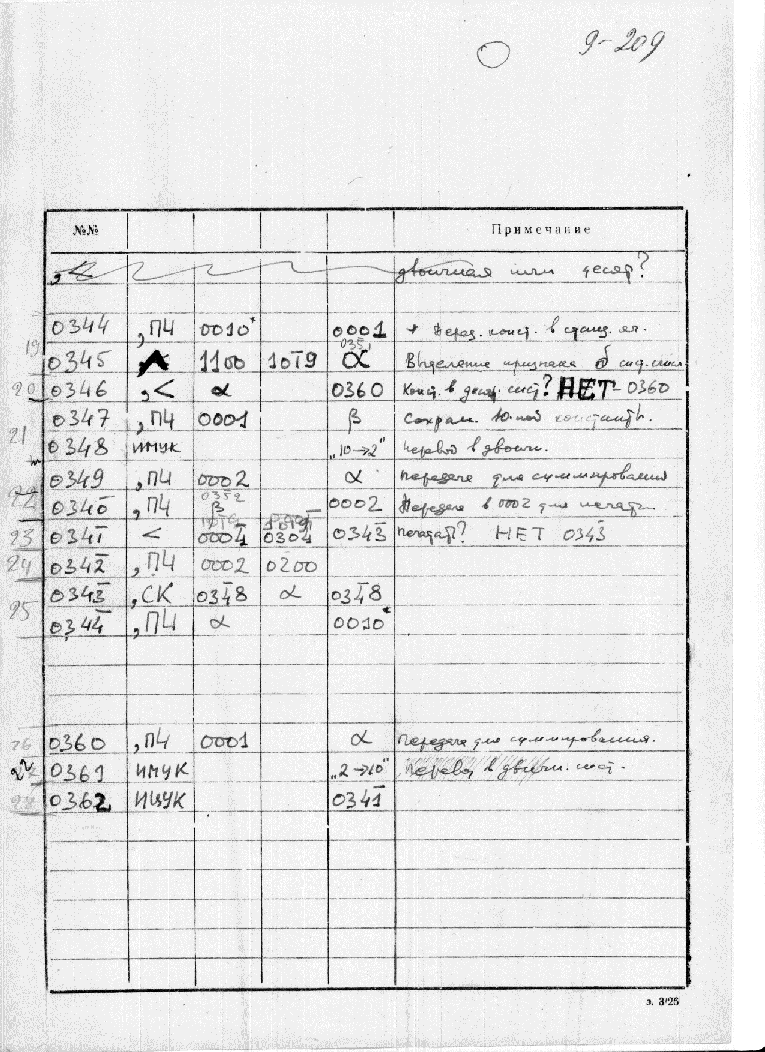 9-209
№№ Примечание
двоичная или десят?
0344 ,ПЧ 0010* 0001 Перед. конст. в станд. яч.
19 0345 1100 10Т9 α Выделение признака сист.
20 0346 ,< α 0360 Конст. в десят. сист? НЕТ - 0360
21 0347 ,ПЧ 0001 β Сохран. 10-ной константы.
0348 ИМУК „10→2" перевод в двоичн.
0349 ,ПЧ 0002 α передача для суммирования
0352
22 0340̅ ,ПЧ β 0002 Передача в 0002 для печати.
23 0341̅ < 0001̅ 0304 0343̅ печатать? НЕТ 0343̅
24 0342̅ ,ПЧ 0002 0200
0343̅ ,СК 034̅8 α 034̅8
25
0344̅ ,ПЧ α 0010*
26 0360 ,ПЧ 0001 α передача для суммирования.
0361 ИМУК „2→10" Перевод в двоичн. сист.
0362 ИЦУК 0341̅
з. 3/25